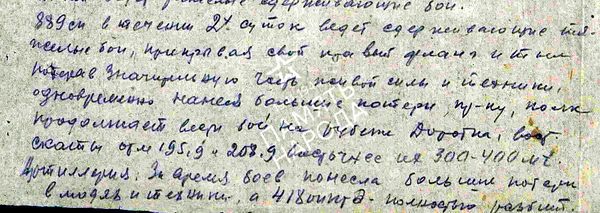 сдерживающие бои.
889 сп в течении 2х суток ведет сдерживающие тя-
желые бои, прикрывая свой правый фланг и тыл
потеряв значительную часть живой силы и техники,
одновременно нанеся большие потери пр-ку, полк
продолжает вести бой на рубеже Доротка, вост.
скаты отм 195,9 и 208,9 вост. их 300-400 мт.
Артиллерия. За время боев понесла большие потери
в людях и технике, а полностью разбит.
ПАМЯТЬ НАРОДА